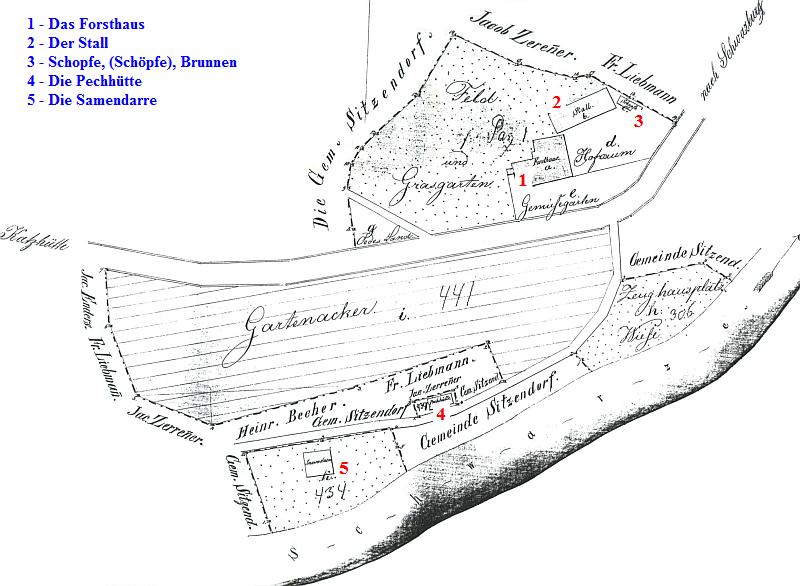 1 - Das Forsthaus
2 - Der Stall
3 - Schopfe, (Schöpfe), Brunnen
4 - Die Pechhütte
5 - Die Samendarre
Jacob Zereñer.
Fr. Liebmann
nach Schwarzburg
Die Gem. Sitzendorf.
Feld
und
Grasgarten
2
Stall
b.
3
1
Forsthaus
a
d.
Hofraum
e
Gemüsegarten
g
Oedes Land
Katzhütte
Gartenacker i. 441
Gemeinde Sitzend.
Zeughausplatz
h. 306
Wiese
Fr. Liebman.
Jac. Zerreñer.
Heinr. Becher.
Fr. Liebmann.
Jac. Zerreñer
Gem. Sitzendorf
Gem. Sitzend
4
Gemeinde Sitzendorf.
Gem. Sitzend.
5
434
S - c - h - w - a - r - z - e.